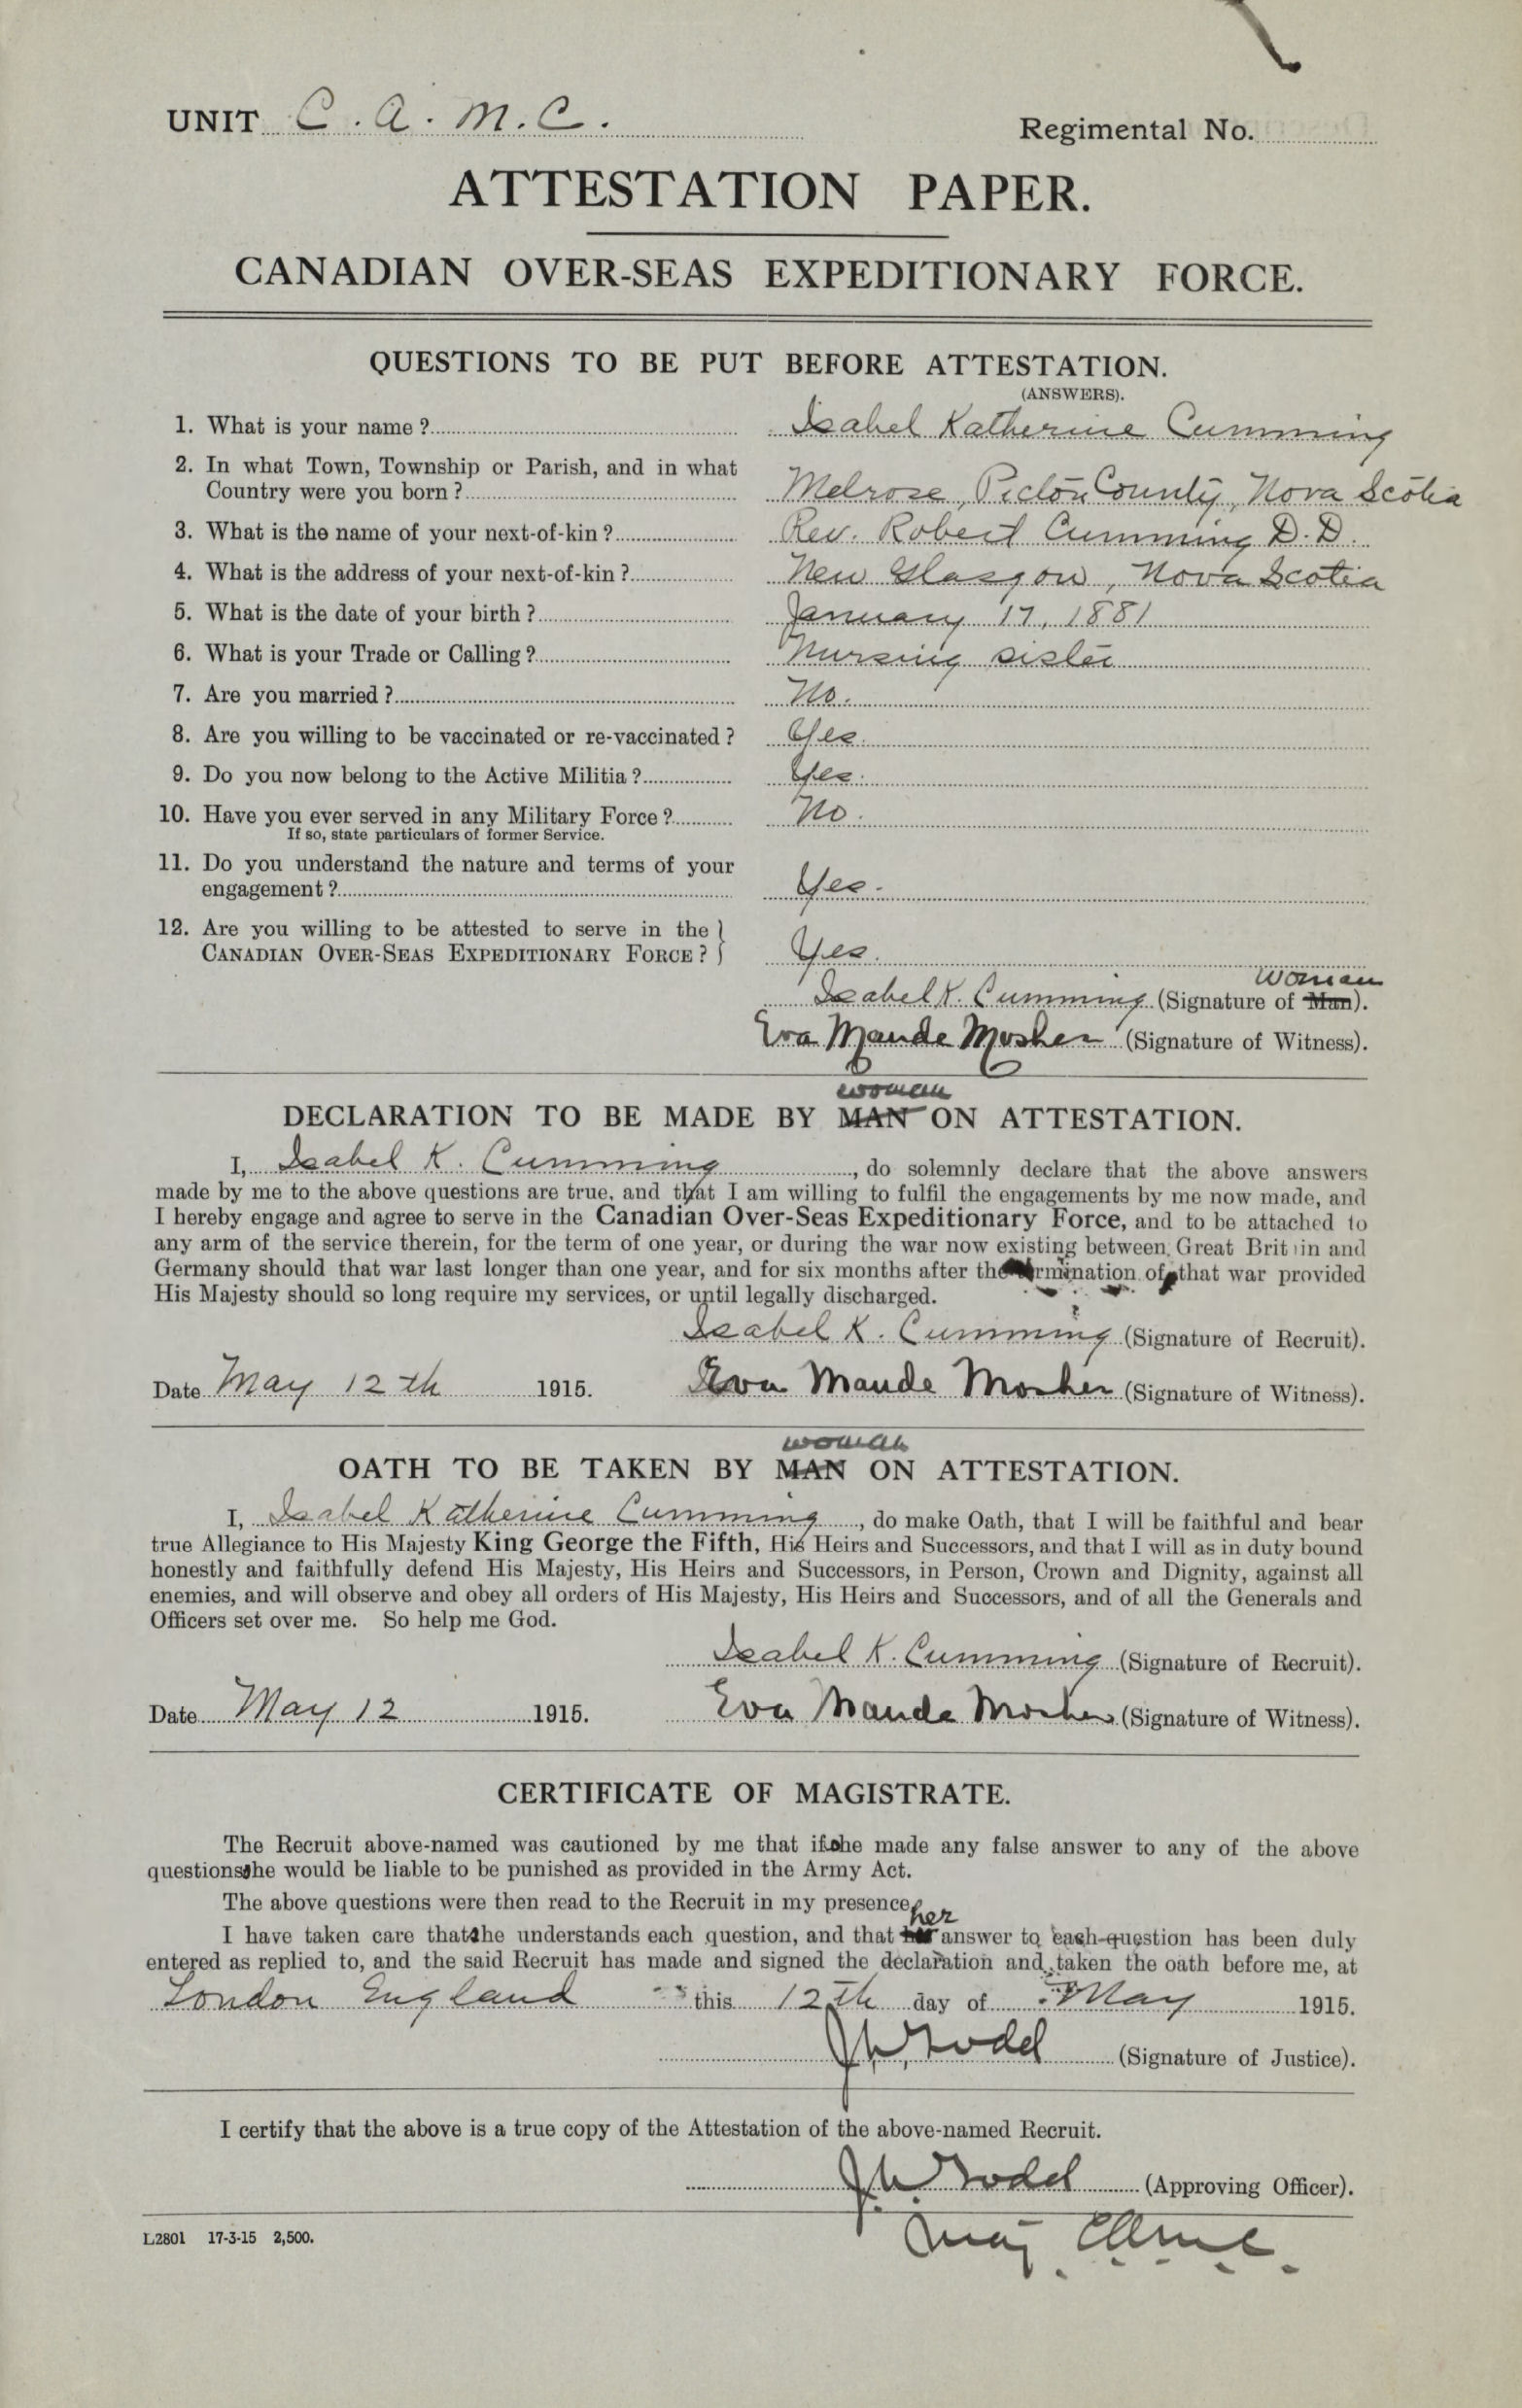 UNIT C. A. M. C. Regimental No.
ATTESTATION PAPER.
CANADIAN OVER-SEAS EXPEDITIONARY FORCE.
QUESTIONS TO BE PUT BEFORE ATTESTATION.
(ANSWERS).
1. What is your name? Isabel Katherine Cumming
2. In what Town, Township or Parish, and in what
Country were you born? Melrose, Pictou County, Nova Scotia
3. What is the name of your next-of-kin? Rev. Robert Cumming D.D.
4. What is the address of your next-of-kin? New Glasgow, Nova Scotia
5. What is the date of your birth? January 17, 1881
6. What is your Trade or Calling? Nursing sister
7. Are you married? No.
8. Are you willing to be vaccinated or re-vaccinated? Yes.
9. Do you now belong to the Active Militia? Yes.
10. Have you ever served in any Military Force? No.
If so, state particulars of former Service.
11. Do you understand the nature and terms of your
engagement? Yes.
12. Are you willing to be attested to serve in the
CANADIAN OVER-SEAS EXPEDITIONARY FORCE? Yes.
Woman
Isabel K. Cumming (Signature of Man).
Eva Maude Mosher (Signature of Witness).
woman
DECLARATION TO BE MADE BY MAN ON ATTESTATION.
I, Isabel K. Cumming, do solemnly declare that the above answers
made by me to the above questions are true, and that I am willing to fulfil the engagements by me now made, and
I hereby engage and agree to serve in the Canadian Over-Seas Expeditionary Force, and to be attached to
any arm of the service therein, for the term of one year, or during the war now existing between Great Britain and
Germany should that war last longer than one year, and for six months after the termination of that war provided
His Majesty should so long require my services, or until legally discharged.
Isabel K. Cumming (Signature of Recruit).
Date May 12th 1915. Eva Maude Mosher (Signature of Witness).
woman
OATH TO BE TAKEN BY MAN ON ATTESTATION.
I, Isabel Katherine Cumming, do make Oath, that I will be faithful and bear
true Allegiance to His Majesty King George the Fifth, His Heirs and Successors, and that I will as in duty bound
honestly and faithfully defend His Majesty, His Heirs and Successors, in Person, Crown and Dignity, against all
enemies, and will observe and obey all orders of His Majesty, His Heirs and Successors, and of all the Generals and
Officers set over me. So help me God.
Isabel K. Cumming (Signature of Recruit).
Date May 12 1915. Eva Maude Mosher (Signature of Witness).
CERTIFICATE OF MAGISTRATE.
The Recruit above-named was cautioned by me that if she made any false answer to any of the above
questions she would be liable to be punished as provided in the Army Act.
The above questions were then read to the Recruit in my presence.
her
I have taken care that she understands each question, and that answer to each question has been duly
entered as replied to, and the said Recruit has made and signed the declaration and taken the oath before me, at
London England this 12th day of May 1915.
(Signature of Justice).
I certify that the above is a true copy of the Attestation of the above-named Recruit.
(Approving Officer).
L2801 17-3-15 2,500.
Maj